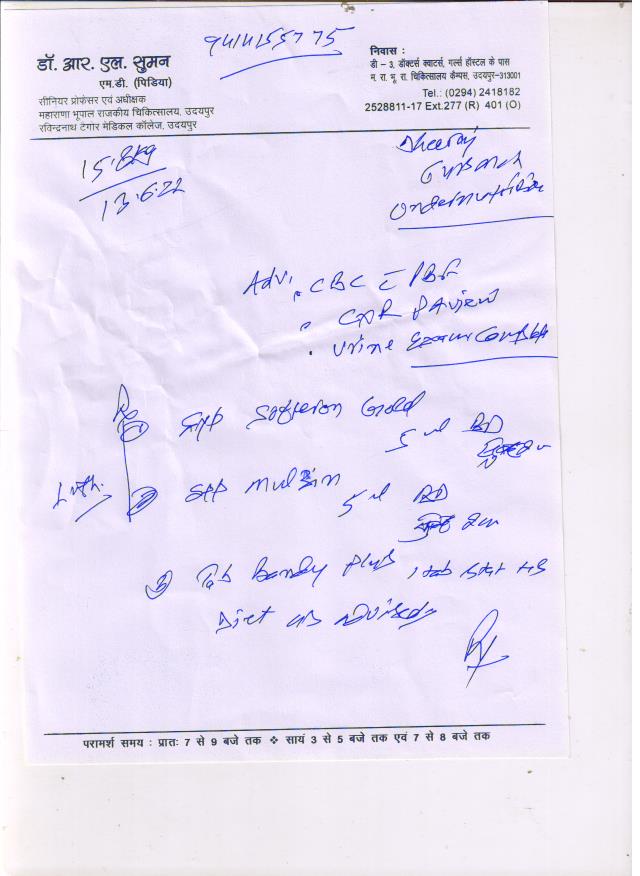 9414155775
डॉ. आर. एल. सुमन
एम.डी. (पिडिया)
सीनियर प्रोफेसर एवं अधीक्षक
महाराणा भूपाल राजकीय चिकित्सालय, उदयपुर
रविन्द्रनाथ टैगोर मेडिकल कॉलेज, उदयपुर
निवास :
डी – 3, डॉक्टर्स क्वाटर्स, गर्ल्स हॉस्टल के पास
म. रा. भू. रा. चिकित्सालय कैम्पस, उदयपुर-313001
Tel.: (0294) 2418182
2528811-17 Ext.277 (R) 401 (O)
15.8kg
13.6.22
Dheeraj
Undernutrition
Advi. CBC PBF
PA view
Urine Exam Complete
Rx
① Syp Gold 5 ml BD
1 mth.
② Syp 5 ml BD
③ Tab Bandy Plus 1 tab stat HS
Diet as advised
परामर्श समय : प्रातः 7 से 9 बजे तक ❖ सायं 3 से 5 बजे तक एवं 7 से 8 बजे तक